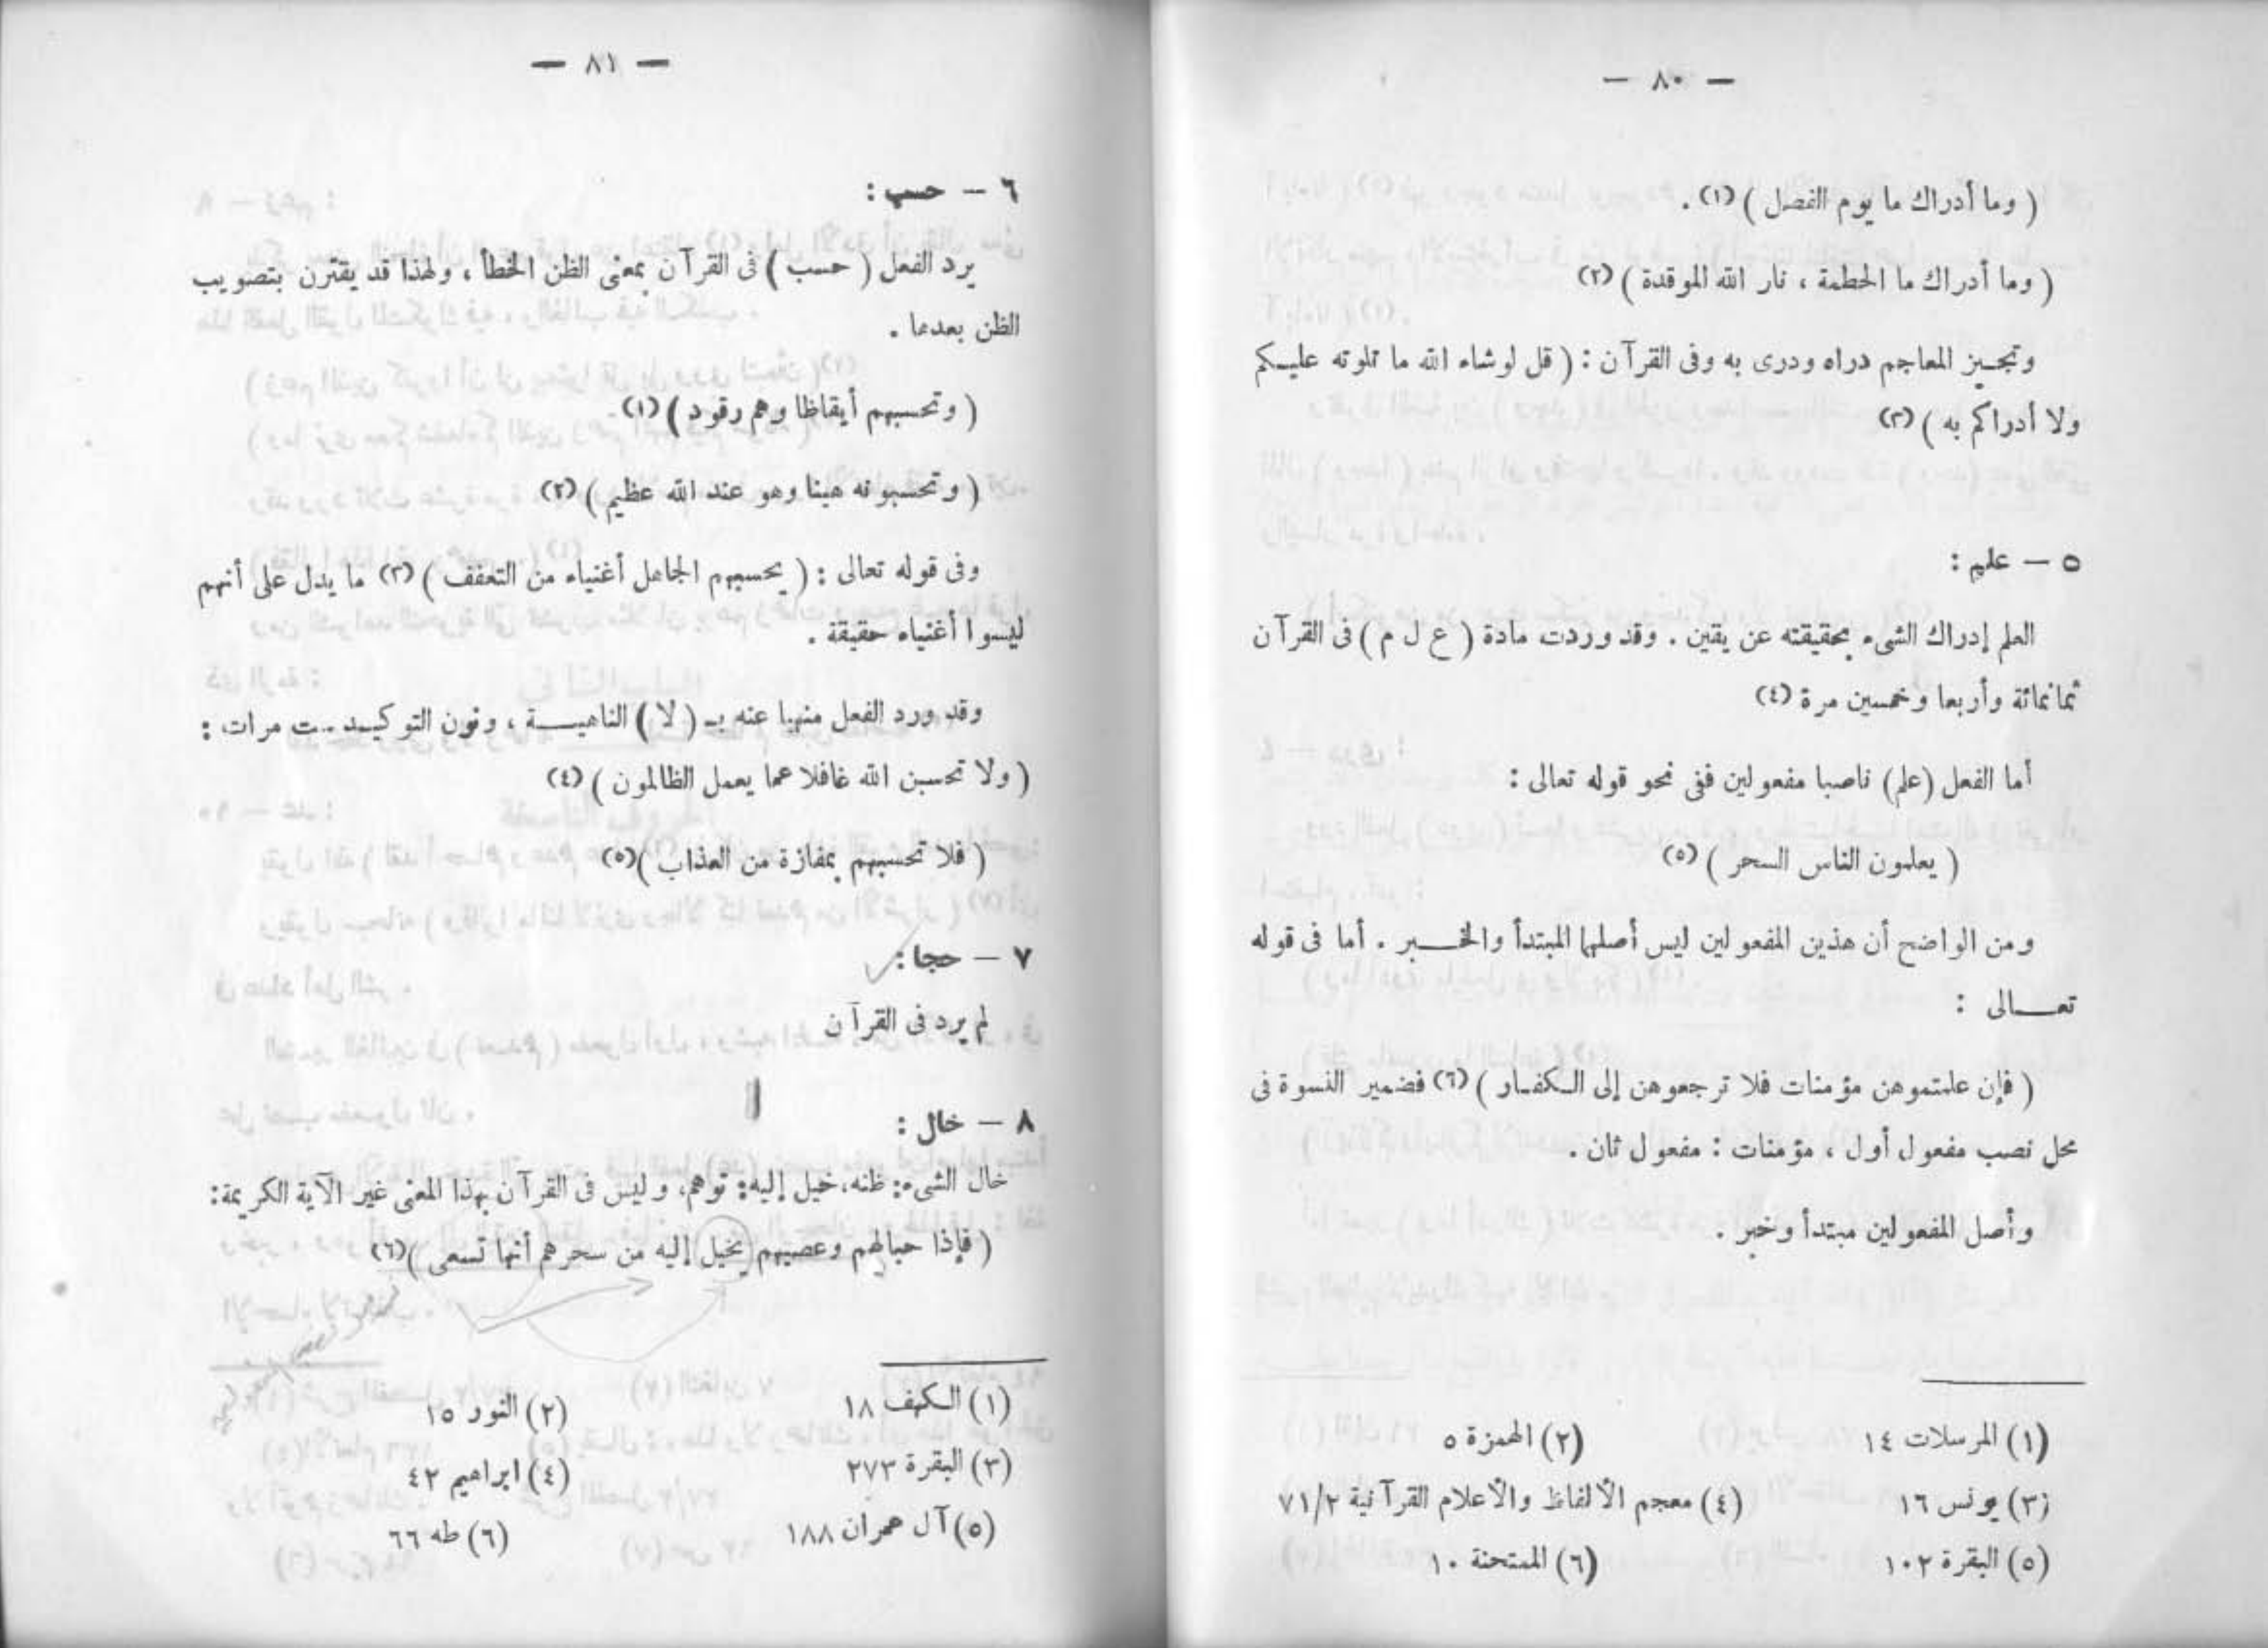 — ٨٠ —
( وما أدراك ما يوم الفصل ) (١) .
( وما أدراك ما الحطمة ، نار الله الموقدة ) (٢)
وتجيز المعاجم دراه ودرى به وفى القرآن : ( قل لو شاء الله ما تلوته عليكم
ولا أدراكم به ) (٣)
٥ — علم :
العلم إدراك الشىء بحقيقته عن يقين . وقد وردت مادة ( ع ل م ) فى القرآن
ثمانمائة وأربعا وخمسين مرة (٤)
أما الفعل (علم) ناصبا مفعولين ففى نحو قوله تعالى :
( يعلمون الناس السحر ) (٥)
ومن الواضح أن هذين المفعولين ليس أصلهما المبتدأ والخبر . أما فى قوله
تعالى :
( فإن علمتموهن مؤمنات فلا ترجعوهن إلى الكفار ) (٦) فضمير النسوة فى
محل نصب مفعول أول ، مؤمنات : مفعول ثان .
وأصل المفعولين مبتدأ وخبر .
(١) المرسلات ١٤ (٢) الهمزة ٥
(٣) يونس ١٦ (٤) معجم الألفاظ والأعلام القرآنية ٧١/٢
(٥) البقرة ١٠٢ (٦) الممتحنة ١٠
— ٨١ —
٦ — حسب :
يرد الفعل ( حسب ) فى القرآن بمعنى الظن الخطأ ، ولهذا قد يقترن بتصويب
الظن بعدها .
( وتحسبهم أيقاظا وهم رقود ) (١)
( وتحسبونه هينا وهو عند الله عظيم ) (٢)
وفى قوله تعالى : ( يحسبهم الجاهل أغنياء من التعفف ) (٣) ما يدل على أنهم
ليسوا أغنياء حقيقة .
وقد ورد الفعل منهيا عنه بـ ( لا ) الناهية ، ونون التوكيد ست مرات :
( ولا تحسبن الله غافلا عما يعمل الظالمون ) (٤)
( فلا تحسبهم بمفازة من العذاب ) (٥)
٧ — حجا :
لم يرد فى القرآن
٨ — خال :
خال الشىء : ظنه ، خيل إليه : توهم ، وليس فى القرآن بهذا المعنى غير الآية الكريمة :
( فإذا حبالهم وعصيهم يخيل إليه من سحرهم أنها تسعى ) (٦)
(١) الكهف ١٨ (٢) النور ١٥
(٣) البقرة ٢٧٣ (٤) ابراهيم ٤٢
(٥) آل عمران ١٨٨ (٦) طه ٦٦